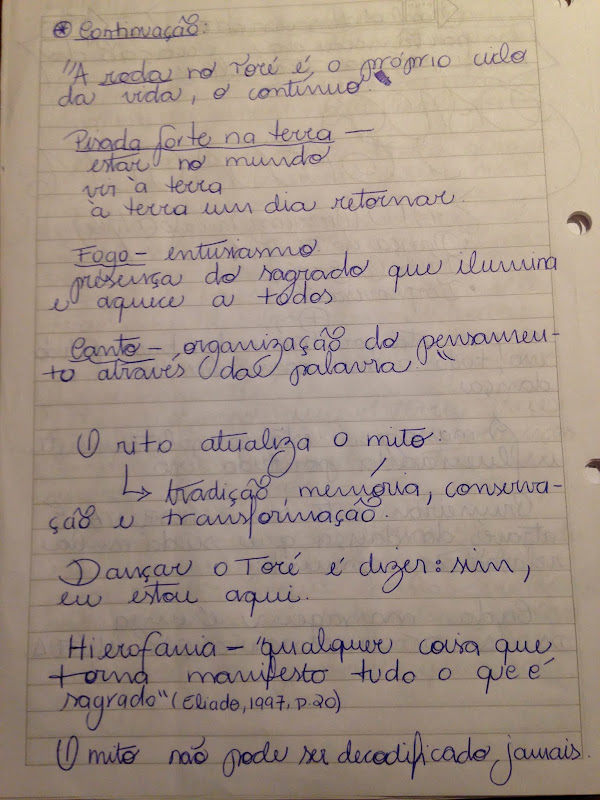 ⊛ Continuação:
"A roda no Toré é, o próprio ciclo
da vida, o contínuo.
Pisada forte na terra —
estar no mundo
vir à terra
à terra um dia retornar.
Fogo - entusiasmo
presença do sagrado que ilumina
e aquece a todos
Canto - organização do pensamen-
to através da palavra"
O rito atualiza o mito.
↳ tradição, memória, conserva-
ção e transformação.
Dançar o Toré é dizer: sim,
eu estou aqui.
Hierofania - "qualquer coisa que
torna manifesto tudo o que é
sagrado" (Eliade, 1997, p.20)
O mito não pode ser decodificado, jamais.